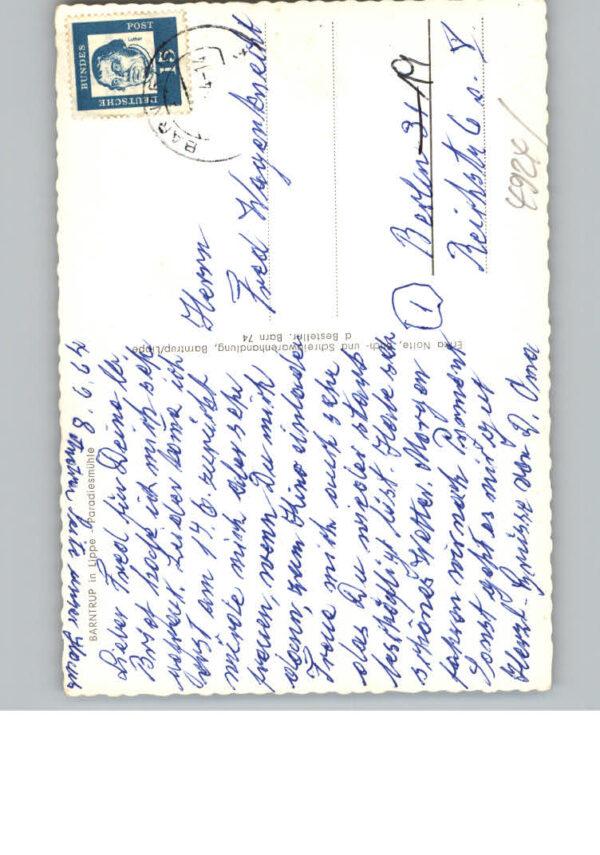 DEUTSCHE
BUNDES
POST
15
Luther
BARNTRUP in Lippe - Paradiesmühle
Lieber Fred für Deine
Brief habe ich mich sehr
gefreut. Leider komme ich
erst am 17.6. zurück
würde mich aber sehr
freuen wenn Du mich
dann, zum Kino einladen
Freue mich auch sehr
das Du wieder
beschäftigt bist. Habe sehr
schönes Wetter. Morgen
fahren wir nach Pyrmont
Sonst geht es mir gut
Herzl. Grüsse von D. Oma
Erika Nolte, Buch- und Schreibwarenhandlung, Barntrup/Lippe
d Besteller. Barn 74
Herrn
Fred Wagenknecht
1
Berlin 31 19
Reichsstr. 6 a. V
4924/